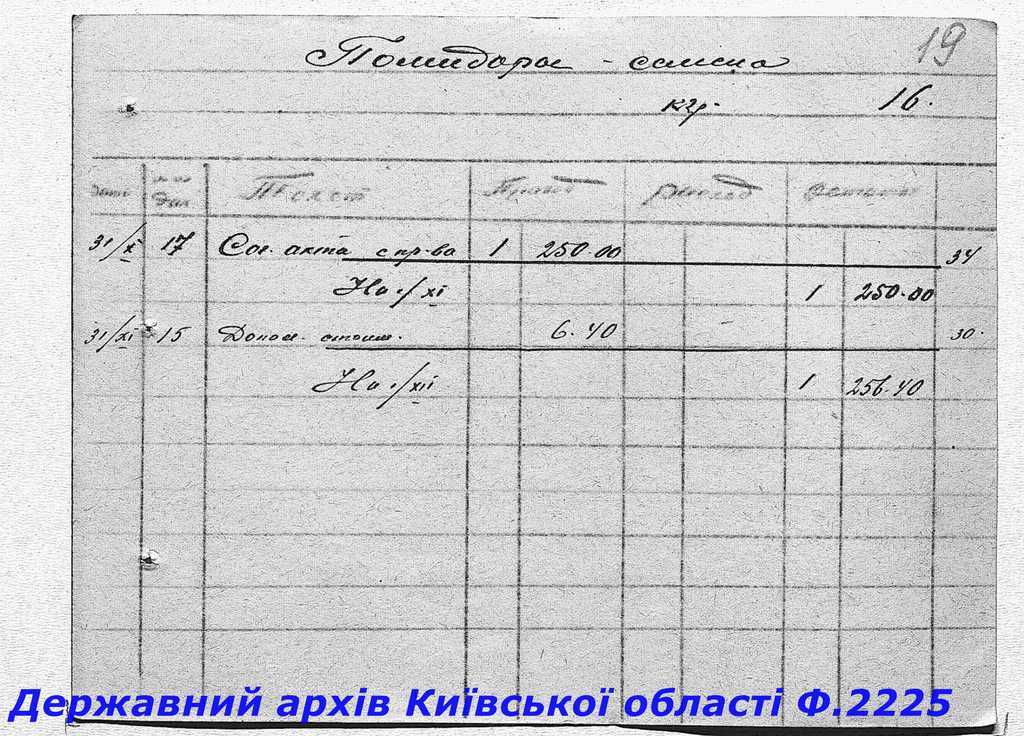 19
Помидоры - семена
кгр. 16.
дата № № док Текст Приход Расход Остаток
31/X 17 Сог. акта с пр-ва 1 250.00 34
На 1/XI 1 250.00
31/XI 15 Допол. стоим. 6.40 30.
На 1/XII 1 256.40
Державний архів Київської області Ф.2225